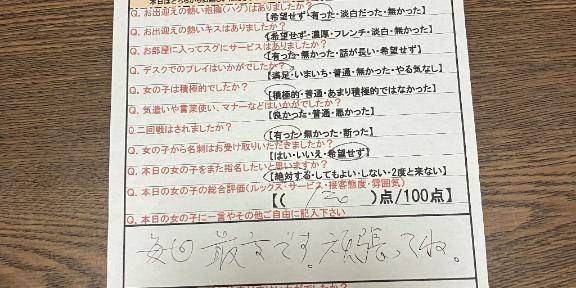 Q. お出迎えの熱い抱擁(ハグ)はありましたか?
【希望せず・有った・淡白だった・無かった】
Q. お出迎えの熱いキスはありましたか?
【希望せず・濃厚・フレンチ・淡白・無かった】
Q. お部屋に入ってスグにサービスはありましたか?
【有った・無かった・話が長い・希望せず】
Q. デスクでのプレイはいかがでしたか?
【満足・いまいち・普通・無かった・やる気なし】
Q. 女の子は積極的でしたか?
【積極的・普通・あまり積極的ではなかった】
Q. 気遣いや言葉使い、マナーなどはいかがでしたか?
【良かった・普通・悪かった】
Q.二回戦はされましたか?
【有った・無かった・断った】
Q. 女の子から名刺はお受け取りいただきましたか?
【はい・いいえ・希望せず】
Q. 本日の女の子をまた指名したいと思いますか?
【絶対する・してもよい・しない・2度と来ない】
Q. 本日の女の子の総合評価(ルックス・サービス・接客態度・雰囲気)
【( 120 )点/100点】
Q. 本日の女の子に一言やその他ご自由に記入下さい
毎回最高です。頑張ってね。